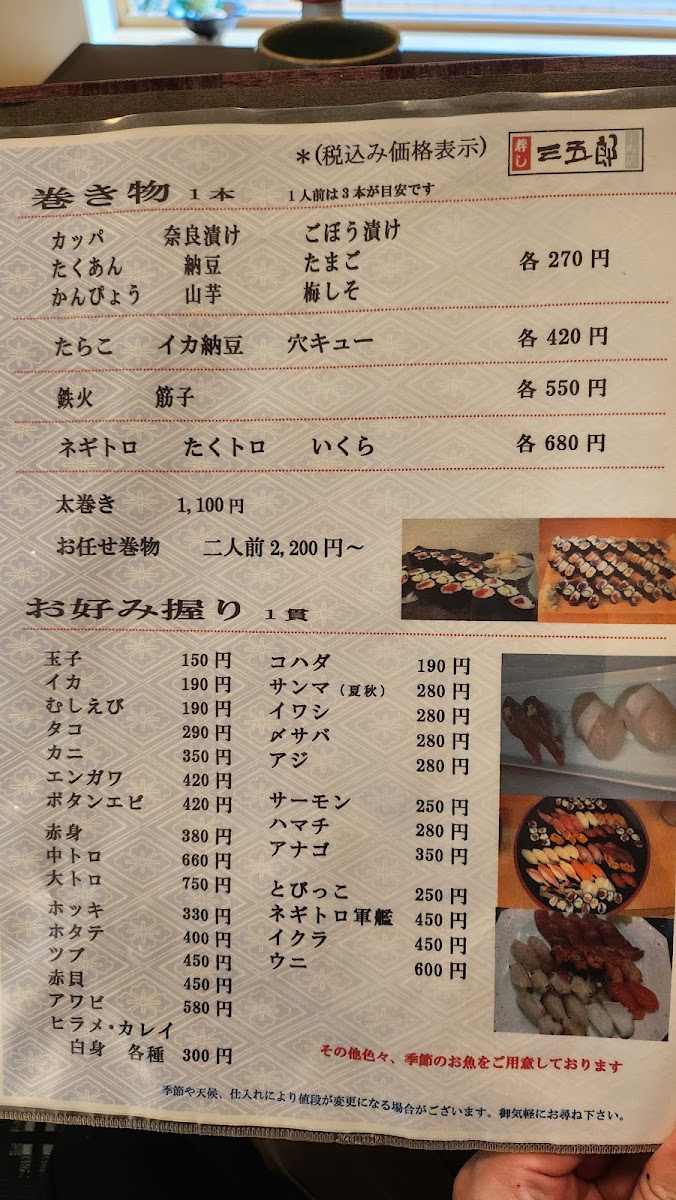 ＊(税込み価格表示)
寿し 三五郎
巻き物 1本 1人前は3本が目安です
カッパ 奈良漬け ごぼう漬け
たくあん 納豆 たまご 各 270 円
かんぴょう 山芋 梅しそ
たらこ イカ納豆 穴キュー 各 420 円
鉄火 筋子 各 550 円
ネギトロ たくトロ いくら 各 680 円
太巻き 1,100円
お任せ巻物 二人前 2,200 円～
お好み握り 1貫
玉子 150 円
イカ 190 円
むしえび 190 円
タコ 290 円
カニ 350 円
エンガワ 420 円
ボタンエビ 420 円
赤身 380 円
中トロ 660 円
大トロ 750 円
ホッキ 330 円
ホタテ 400 円
ツブ 450 円
赤貝 450 円
アワビ 580 円
ヒラメ・カレイ
白身 各種 300 円
コハダ 190 円
サンマ（夏秋） 280 円
イワシ 280 円
〆サバ 280 円
アジ 280 円
サーモン 250 円
ハマチ 280 円
アナゴ 350 円
とびっこ 250 円
ネギトロ軍艦 450 円
イクラ 450 円
ウニ 600 円
その他色々、季節のお魚をご用意しております
季節や天候、仕入れにより値段が変更になる場合がございます。御気軽にお尋ね下さい。